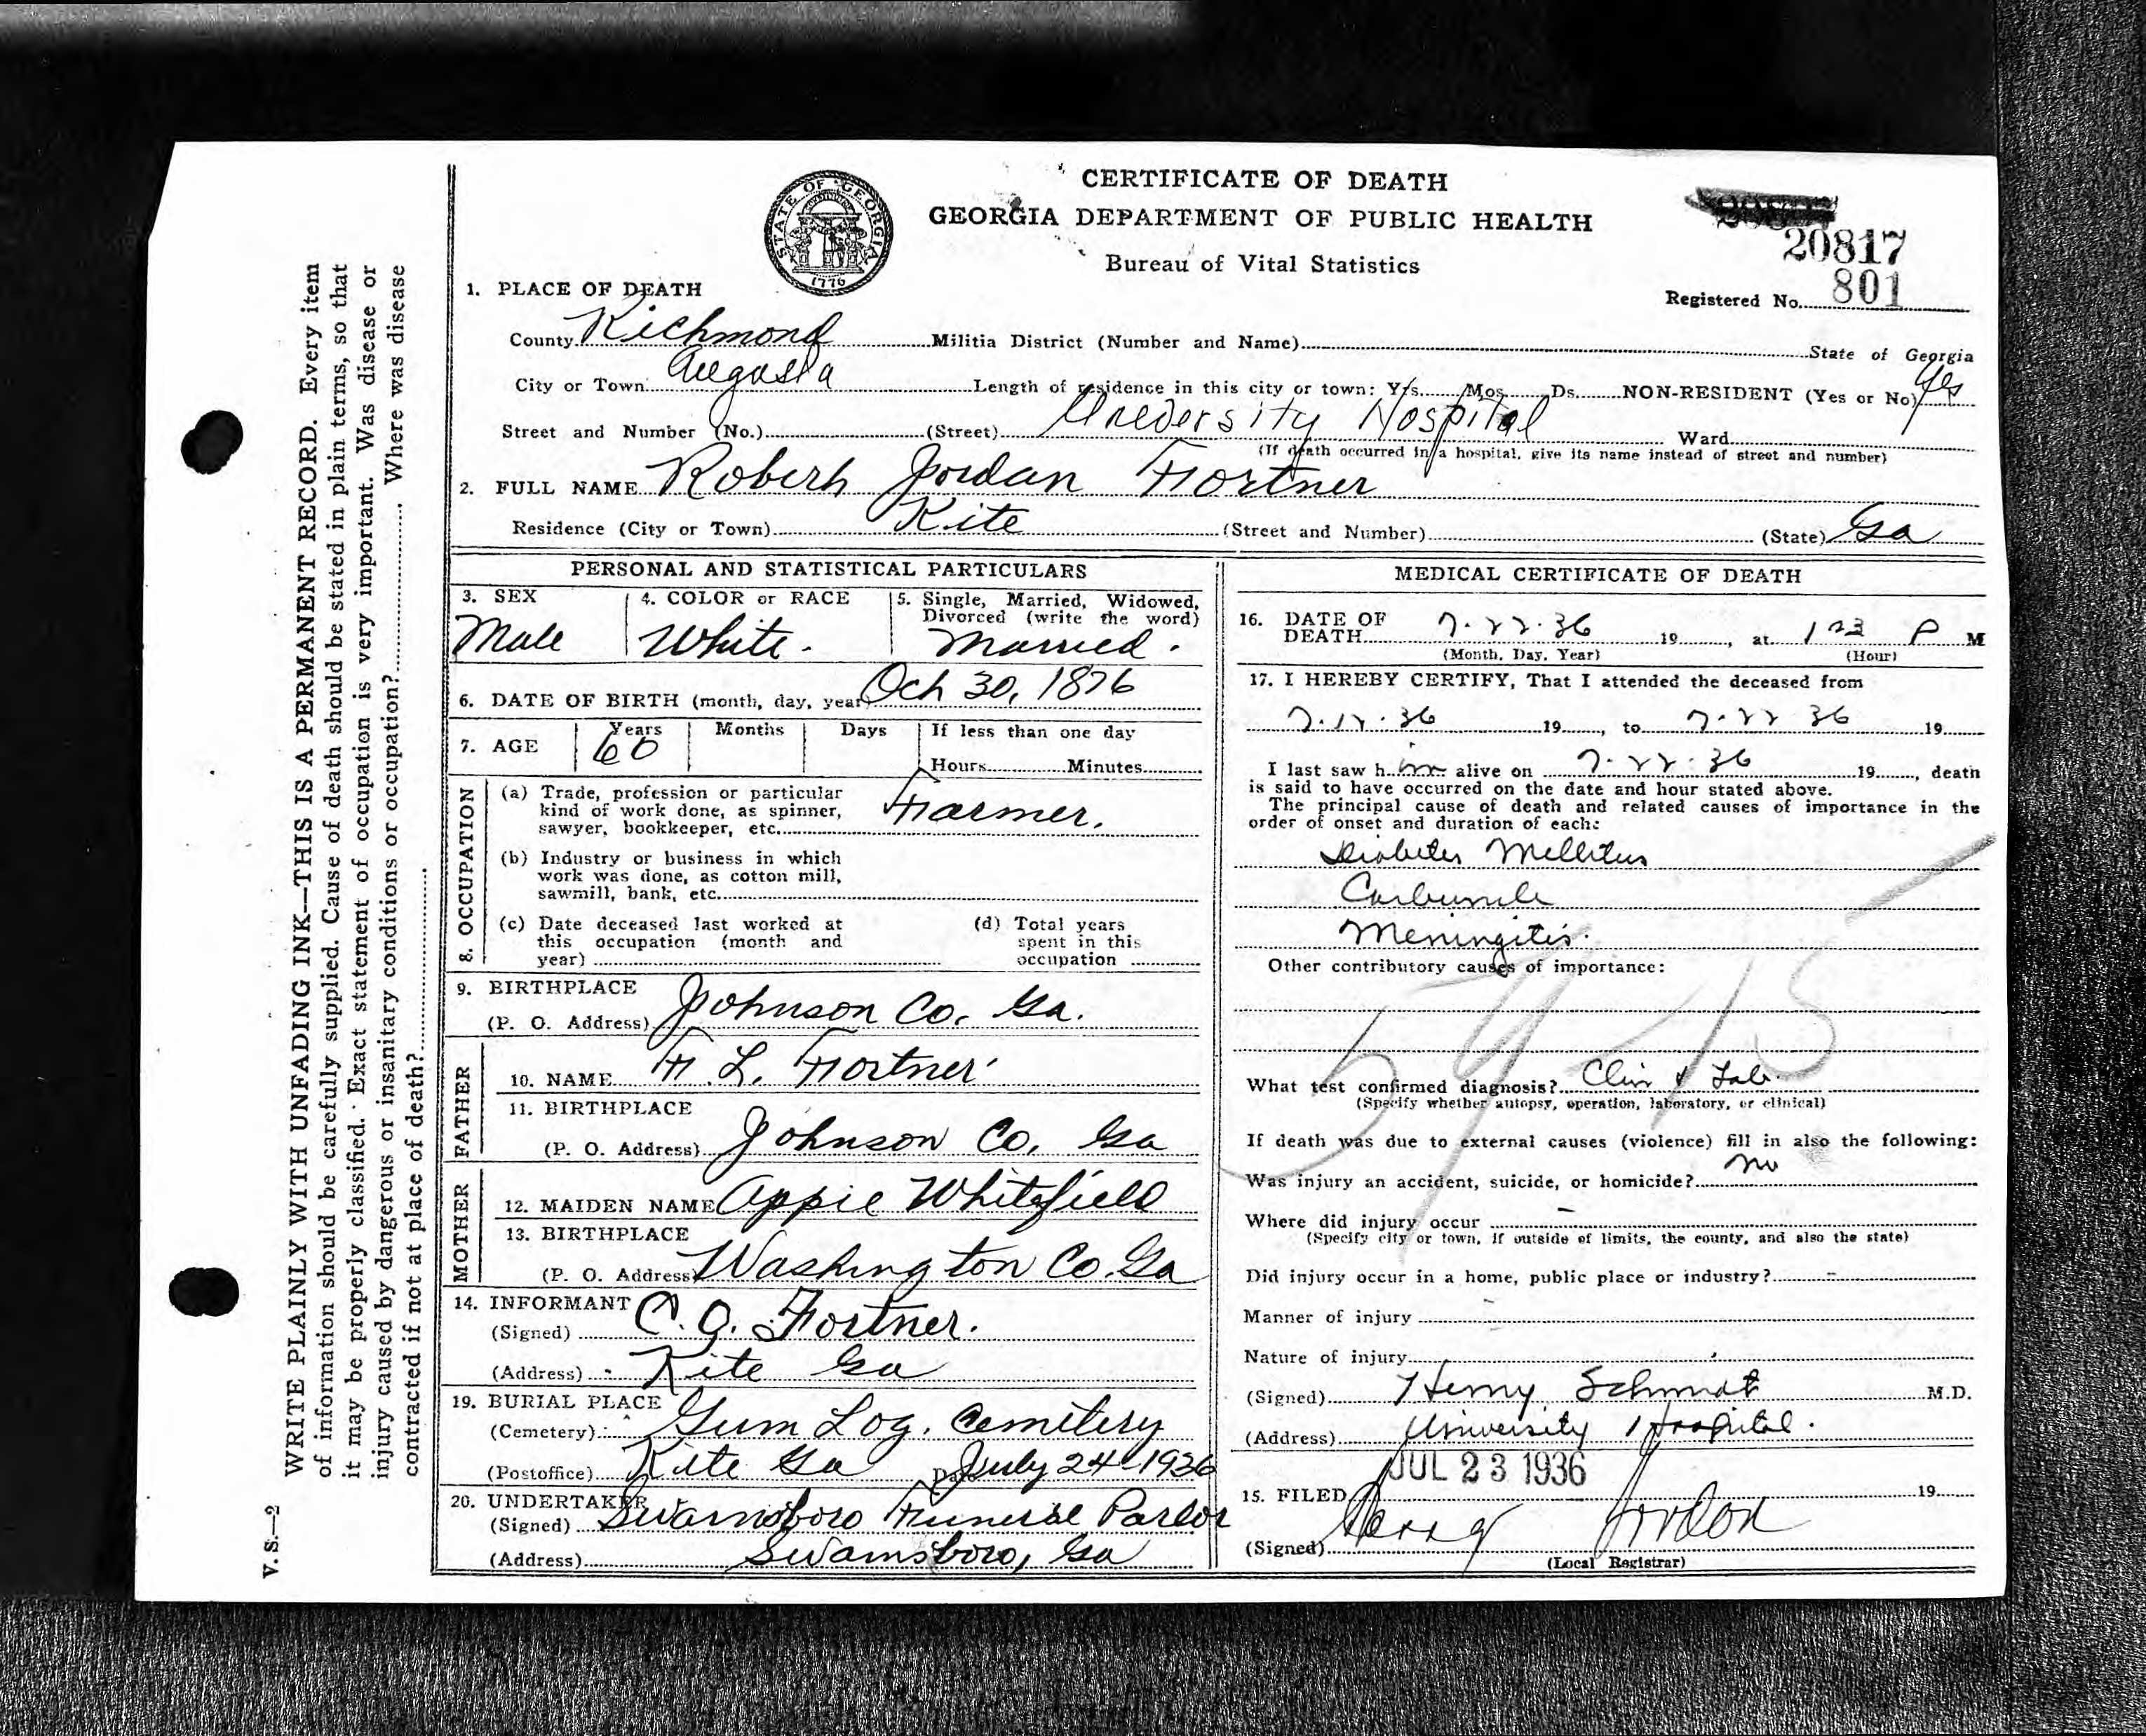 WRITE PLAINLY WITH UNFADING INK—THIS IS A PERMANENT RECORD. Every item
of information should be carefully supplied. Cause of death should be stated in plain terms, so that
it may be properly classified. Exact statement of occupation is very important. Was disease or
injury caused by dangerous or insanitary conditions or occupation? Where was disease
contracted if not at place of death?
V. S.—2
STATE OF GEORGIA
1776
CERTIFICATE OF DEATH
GEORGIA DEPARTMENT OF PUBLIC HEALTH
Bureau of Vital Statistics
20817
Registered No. 801
1. PLACE OF DEATH
County Richmond Militia District (Number and Name) State of Georgia
City or Town Augusta Length of residence in this city or town: Yrs. Mos. Ds. NON-RESIDENT (Yes or No) Yes
Street and Number (No.) (Street) University Hospital Ward
(If death occurred in a hospital, give its name instead of street and number)
2. FULL NAME Robert Jordan Fortner
Residence (City or Town) Kite (Street and Number) (State) Ga
PERSONAL AND STATISTICAL PARTICULARS
3. SEX Male
4. COLOR or RACE White.
5. Single, Married, Widowed,
Divorced (write the word)
Married.
6. DATE OF BIRTH (month, day, year) Oct 30, 1876
7. AGE Years 60 Months Days If less than one day
Hours Minutes
8. OCCUPATION
(a) Trade, profession or particular
kind of work done, as spinner,
sawyer, bookkeeper, etc. Farmer.
(b) Industry or business in which
work was done, as cotton mill,
sawmill, bank, etc.
(c) Date deceased last worked at
this occupation (month and
year)
(d) Total years
spent in this
occupation
9. BIRTHPLACE
(P. O. Address) Johnson Co. Ga.
FATHER
10. NAME F. L. Fortner
11. BIRTHPLACE
(P. O. Address) Johnson Co, Ga
MOTHER
12. MAIDEN NAME Appie Whitefield
13. BIRTHPLACE
(P. O. Address) Washington Co. Ga
14. INFORMANT
(Signed) C. O. Fortner.
(Address) Kite Ga
19. BURIAL PLACE
(Cemetery) Gum Log. Cemitery
(Postoffice) Kite Ga Date July 24 1936
20. UNDERTAKER
(Signed) Swainsboro Funeral Parlor
(Address) Swainsboro, Ga
MEDICAL CERTIFICATE OF DEATH
16. DATE OF
DEATH 7-22-36 19 , at 1 23 P M
(Month, Day, Year) (Hour)
17. I HEREBY CERTIFY, That I attended the deceased from
7-12-36 19 , to 7-22 36 19
I last saw him alive on 7-22-36 19 , death
is said to have occurred on the date and hour stated above.
The principal cause of death and related causes of importance in the
order of onset and duration of each:
Diabetes Mellitus
Carbuncle
Meningitis.
Other contributory causes of importance:
59
What test confirmed diagnosis? Clin & Lab.
(Specify whether autopsy, operation, laboratory, or clinical)
If death was due to external causes (violence) fill in also the following:
Was injury an accident, suicide, or homicide? No
Where did injury occur -
(Specify city or town, if outside of limits, the county, and also the state)
Did injury occur in a home, public place or industry? -
Manner of injury -
Nature of injury
(Signed) Henry Schmidt M.D.
(Address) University Hospital.
JUL 23 1936
15. FILED 19
(Signed) Jordon
(Local Registrar)